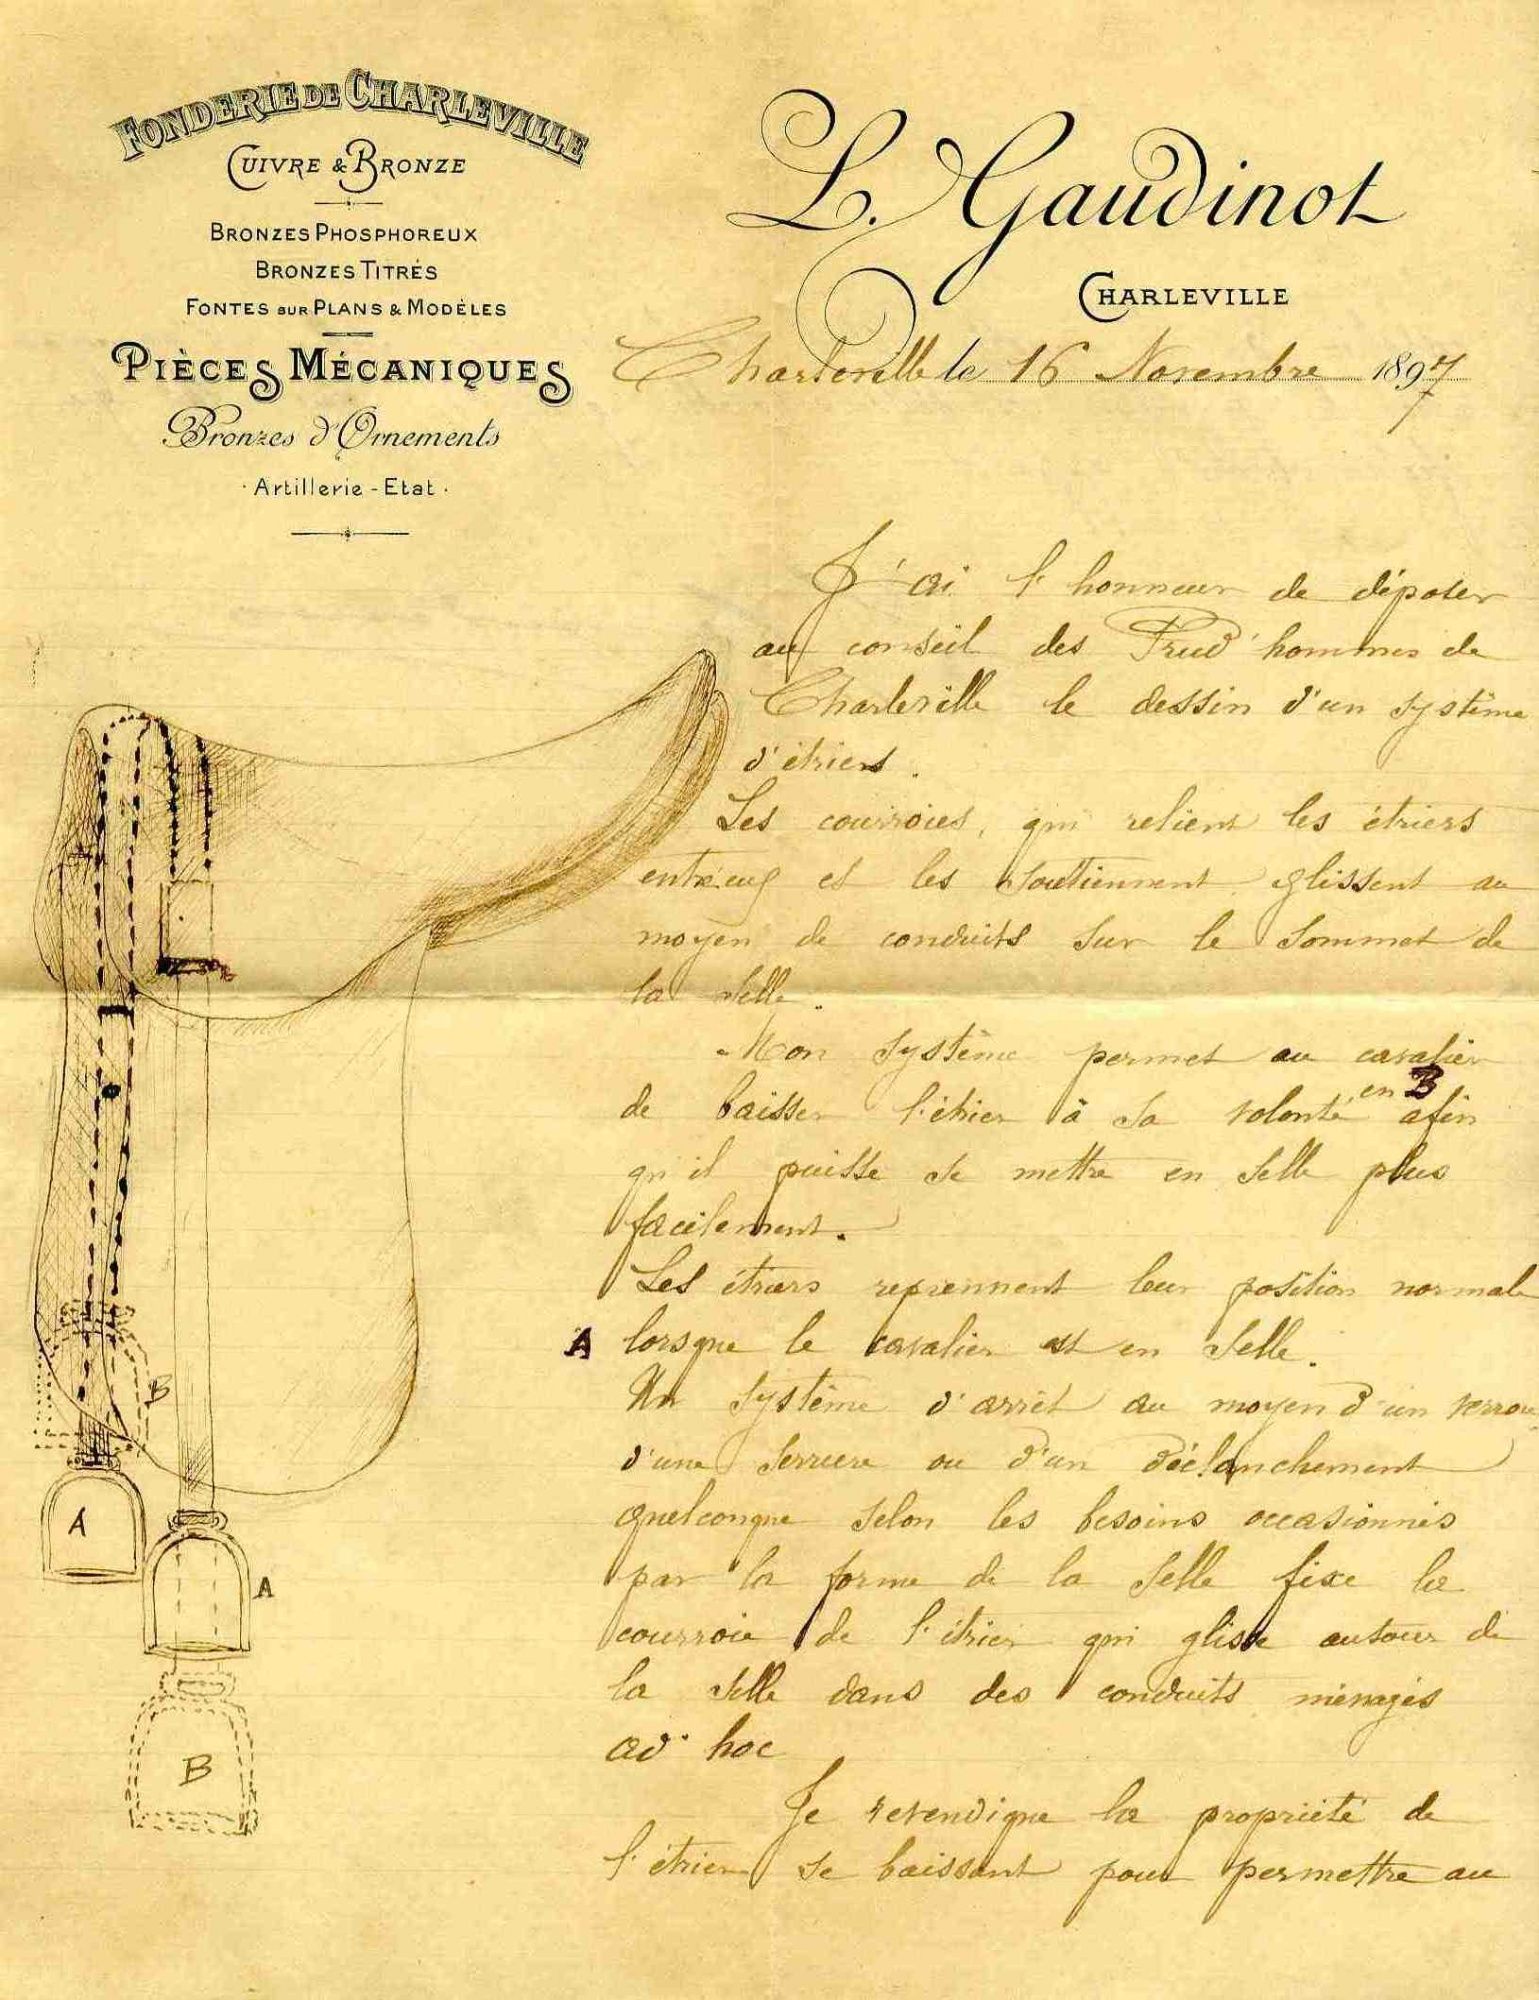 FONDERIE DE CHARLEVILLE
CUIVRE & BRONZE
BRONZES PHOSPHOREUX
BRONZES TITRÉS
FONTES SUR PLANS & MODÈLES
PIÈCES MÉCANIQUES
Bronzes d'Ornements
· Artillerie - Etat ·
L. Gaudinot
CHARLEVILLE
Charleville le 16 Novembre 1897
J'ai l'honneur de déposer
au conseil des Prud'hommes de
Charleville le dessin d'un système
d'étriers.
Les courroies, qui relient les étriers
entre eux et les soutiennent glissent au
moyen de conduits sur le sommet de
la selle.
Mon système permet au cavalier
de baisser l'étrier à sa volonté en B afin
qu'il puisse se mettre en selle plus
facilement.
Les étriers reprennent leur position normale
A lorsque le cavalier est en selle.
Un système d'arrêt au moyen d'un verrou
d'une serrure ou d'un déclanchement
quelconque selon les besoins occasionnés
par la forme de la selle fixe la
courroie de l'étrier qui glisse autour de
la selle dans des conduits ménagés
ad hoc
Je revendique la propriété de
l'étrier se baissant pour permettre au
B
A
A
B